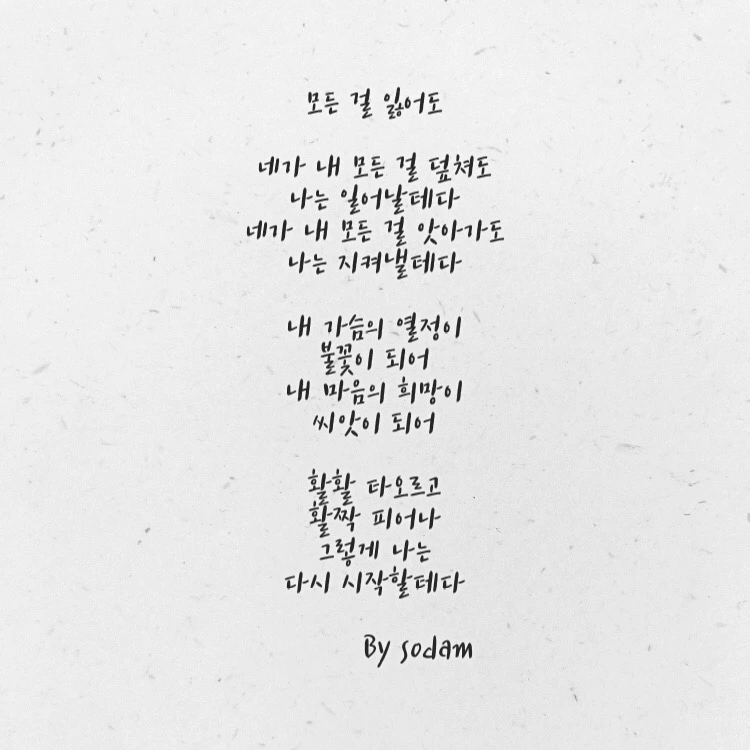 모든 걸 잃어도
네가 내 모든 걸 덮쳐도
나는 일어날테다
네가 내 모든 걸 앗아가도
나는 지켜낼테다
내 가슴의 열정이
불꽃이 되어
내 마음의 희망이
씨앗이 되어
활활 타오르고
활짝 피어나
그렇게 나는
다시 시작할테다
By sodam